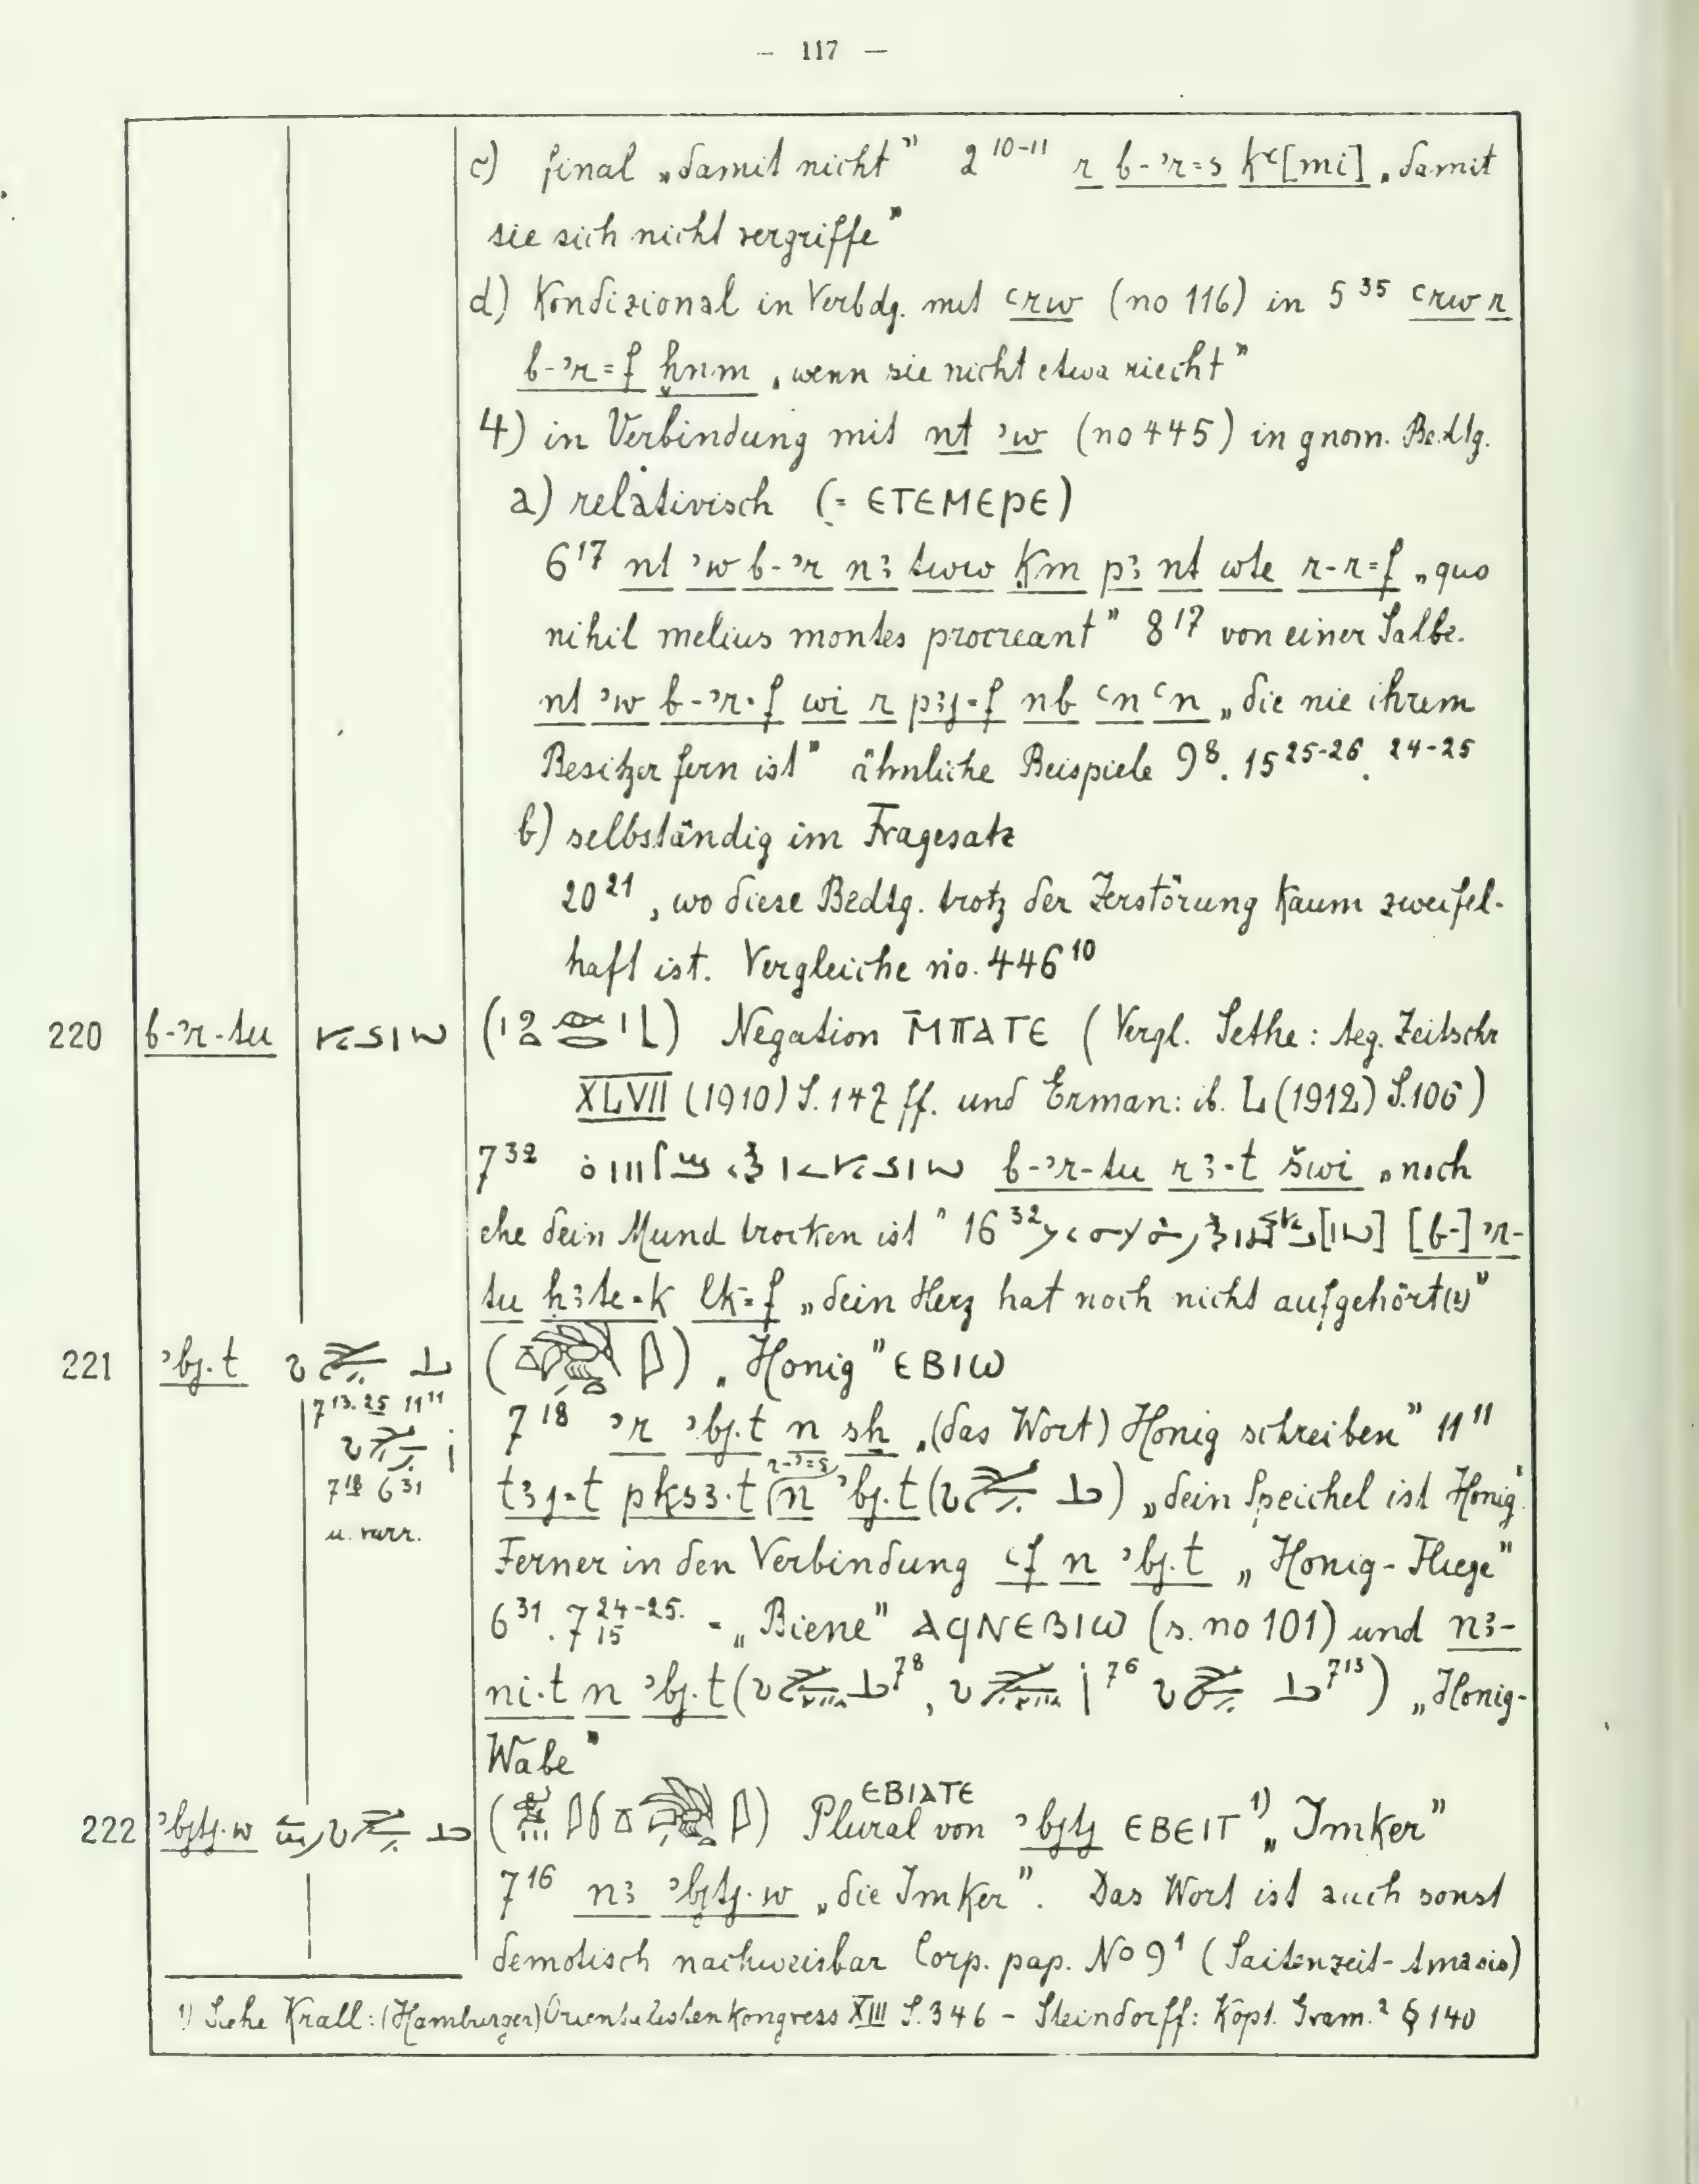 — 117 —
c) final „damit nicht” 2 10-11 r b-ʾr=s kʿ[mi] „damit
sie sich nicht vergriffe”
d) Kondizional in Verbdg. mit ʿrw (no 116) in 5 35 ʿrw r
b-ʾr=f ẖnm „wenn sie nicht etwa riecht”
4) in Verbindung mit nt ʾw (no 445) in gnom. Bedtg.
a) relativisch (= ⲉⲧⲉⲙⲉⲣⲉ)
6 17 nt ʾw b-ʾr nꜣ tww ḳm pꜣ nt wte r-r=f „quo
nihil melius montes procreant” 8 17 von einer Salbe.
nt ʾw b-ʾr=f wi r pꜣj=f nb ʿn ʿn „die nie ihrem
Besitzer fern ist” ähnliche Beispiele 9 8. 15 25-26. 24-25
b) selbständig im Fragesatz
20 21, wo diese Bedtg. trotz der Zerstörung kaum zweifel-
haft ist. Vergleiche no. 446 10
220 b-ʾr-tu Negation ⲙ̄ⲡⲁⲧⲉ (Vergl. Sethe: Aeg. Zeitschr
XLVII (1910) S. 147 ff. und Erman: ib. L (1912) S. 106)
7 32 b-ʾr-tu rꜣ-t šwi „noch
ehe dein Mund trocken ist” 16 32 [b-]ʾr-
tu hꜣte=k lk=f „dein Herz hat noch nicht aufgehört(?)”
221 ʾbj.t „Honig” ⲉⲃⲓⲱ
7 13. 25 11 11
7 18 ʾr ʾbj.t n sh „(das Wort) Honig schreiben” 11 11
7 18 6 31
tꜣj=t pksꜣ.t n ʾbj.t „dein Speichel ist Honig”
u. varr.
Ferner in den Verbindung ʿf n ʾbj.t „Honig-Fliege”
6 31. 7 15 24-25. = „Biene” ⲁϥⲛⲉⲃⲓⲱ (s. no 101) und nꜣ-
ni.t n ʾbj.t ( 7 8, 7 6 7 13) „Honig-
Wabe”
222 ʾbjtj.w ⲉⲃⲓⲁⲧⲉ Plural von ʾbjtj ⲉⲃⲉⲓⲧ 1) „Imker”
7 16 nꜣ ʾbjtj.w „die Imker”. Das Wort ist auch sonst
demotisch nachweisbar Corp. pap. No 9 1 (Saitenzeit-Amasis)
1) Siehe Krall: (Hamburger) Orientalistenkongress XIII S. 346 – Steindorff: Kopt. Gram.² § 140